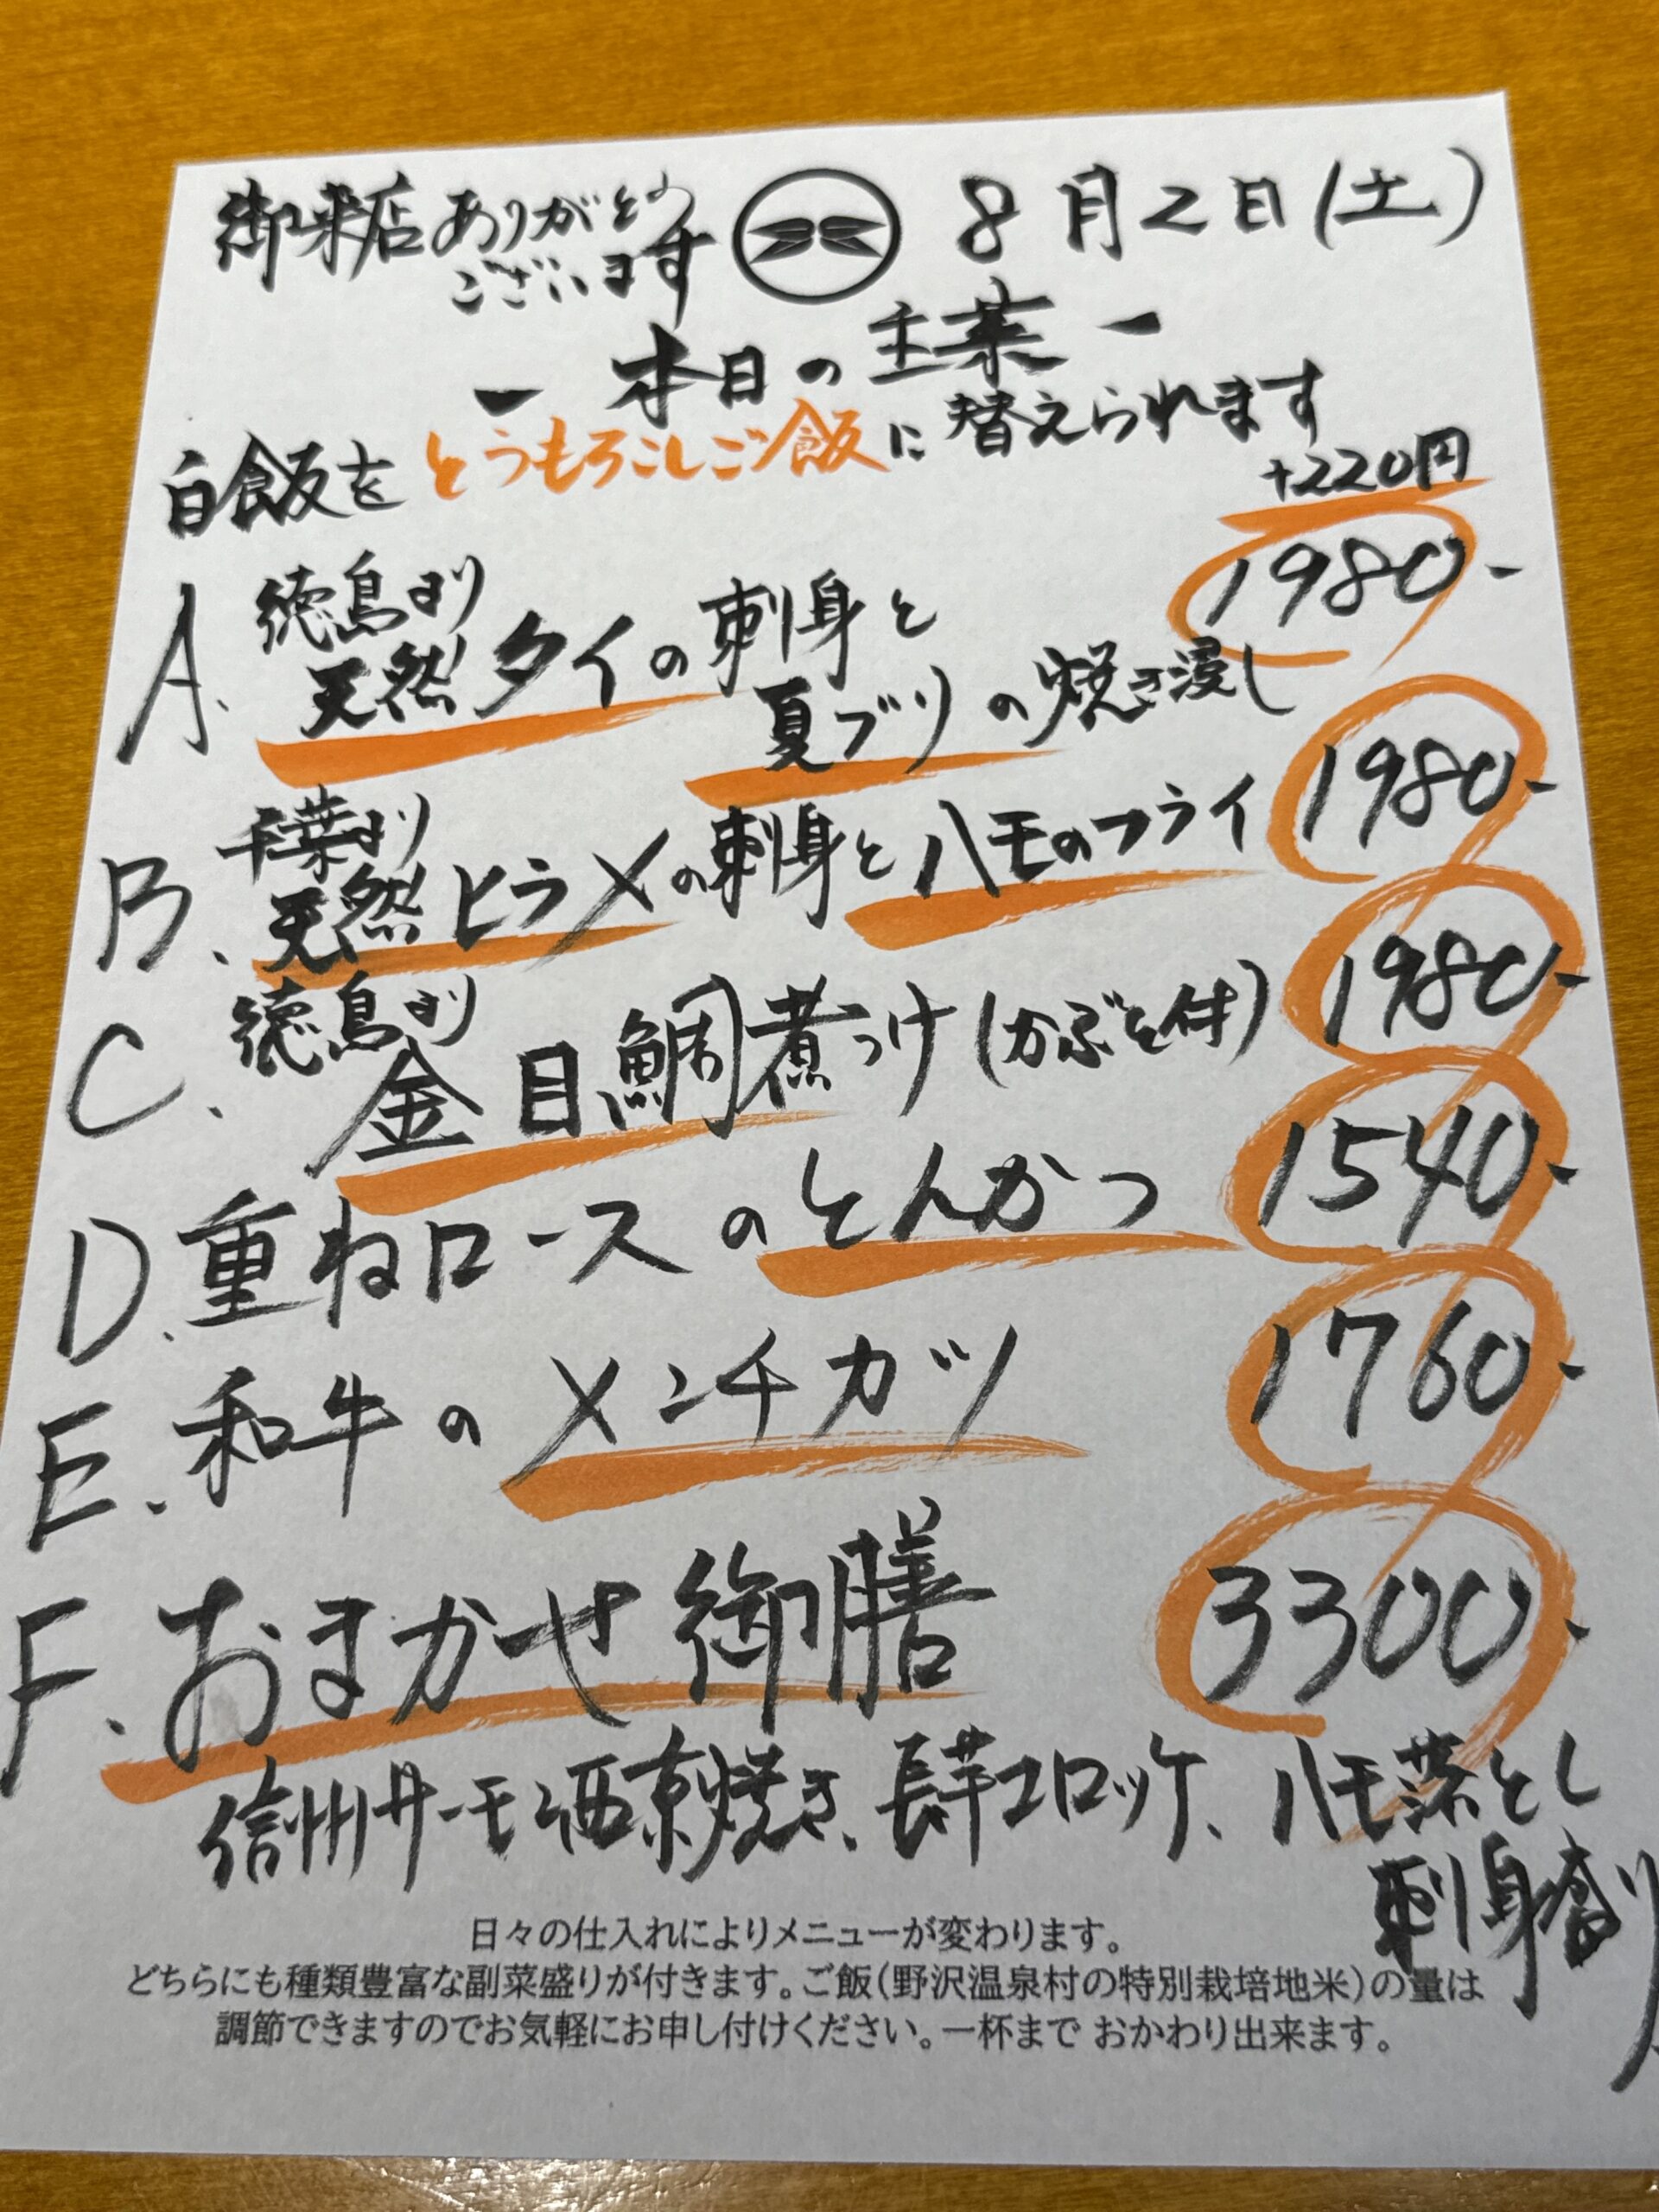 御来店ありがとう
ございます
8月2日(土)
ー 本日の主菜 ー
白飯をとうもろこしご飯に替えられます
+220円
A. 徳島より
天然タイの刺身と
夏ブリの焼き浸し
1980-
B. 千葉より
天然ヒラメの刺身とハモのフライ 1980-
C. 徳島より
金目鯛煮つけ(かぶと付) 1980-
D. 重ねロースのとんかつ 1540-
E. 和牛のメンチカツ 1760-
F. おまかせ御膳 3300-
信州サーモン西京焼き、長芋コロッケ、ハモ落とし
刺身盛り
日々の仕入れによりメニューが変わります。
どちらにも種類豊富な副菜盛りが付きます。ご飯(野沢温泉村の特別栽培地米)の量は
調節できますのでお気軽にお申し付けください。一杯まで おかわり出来ます。